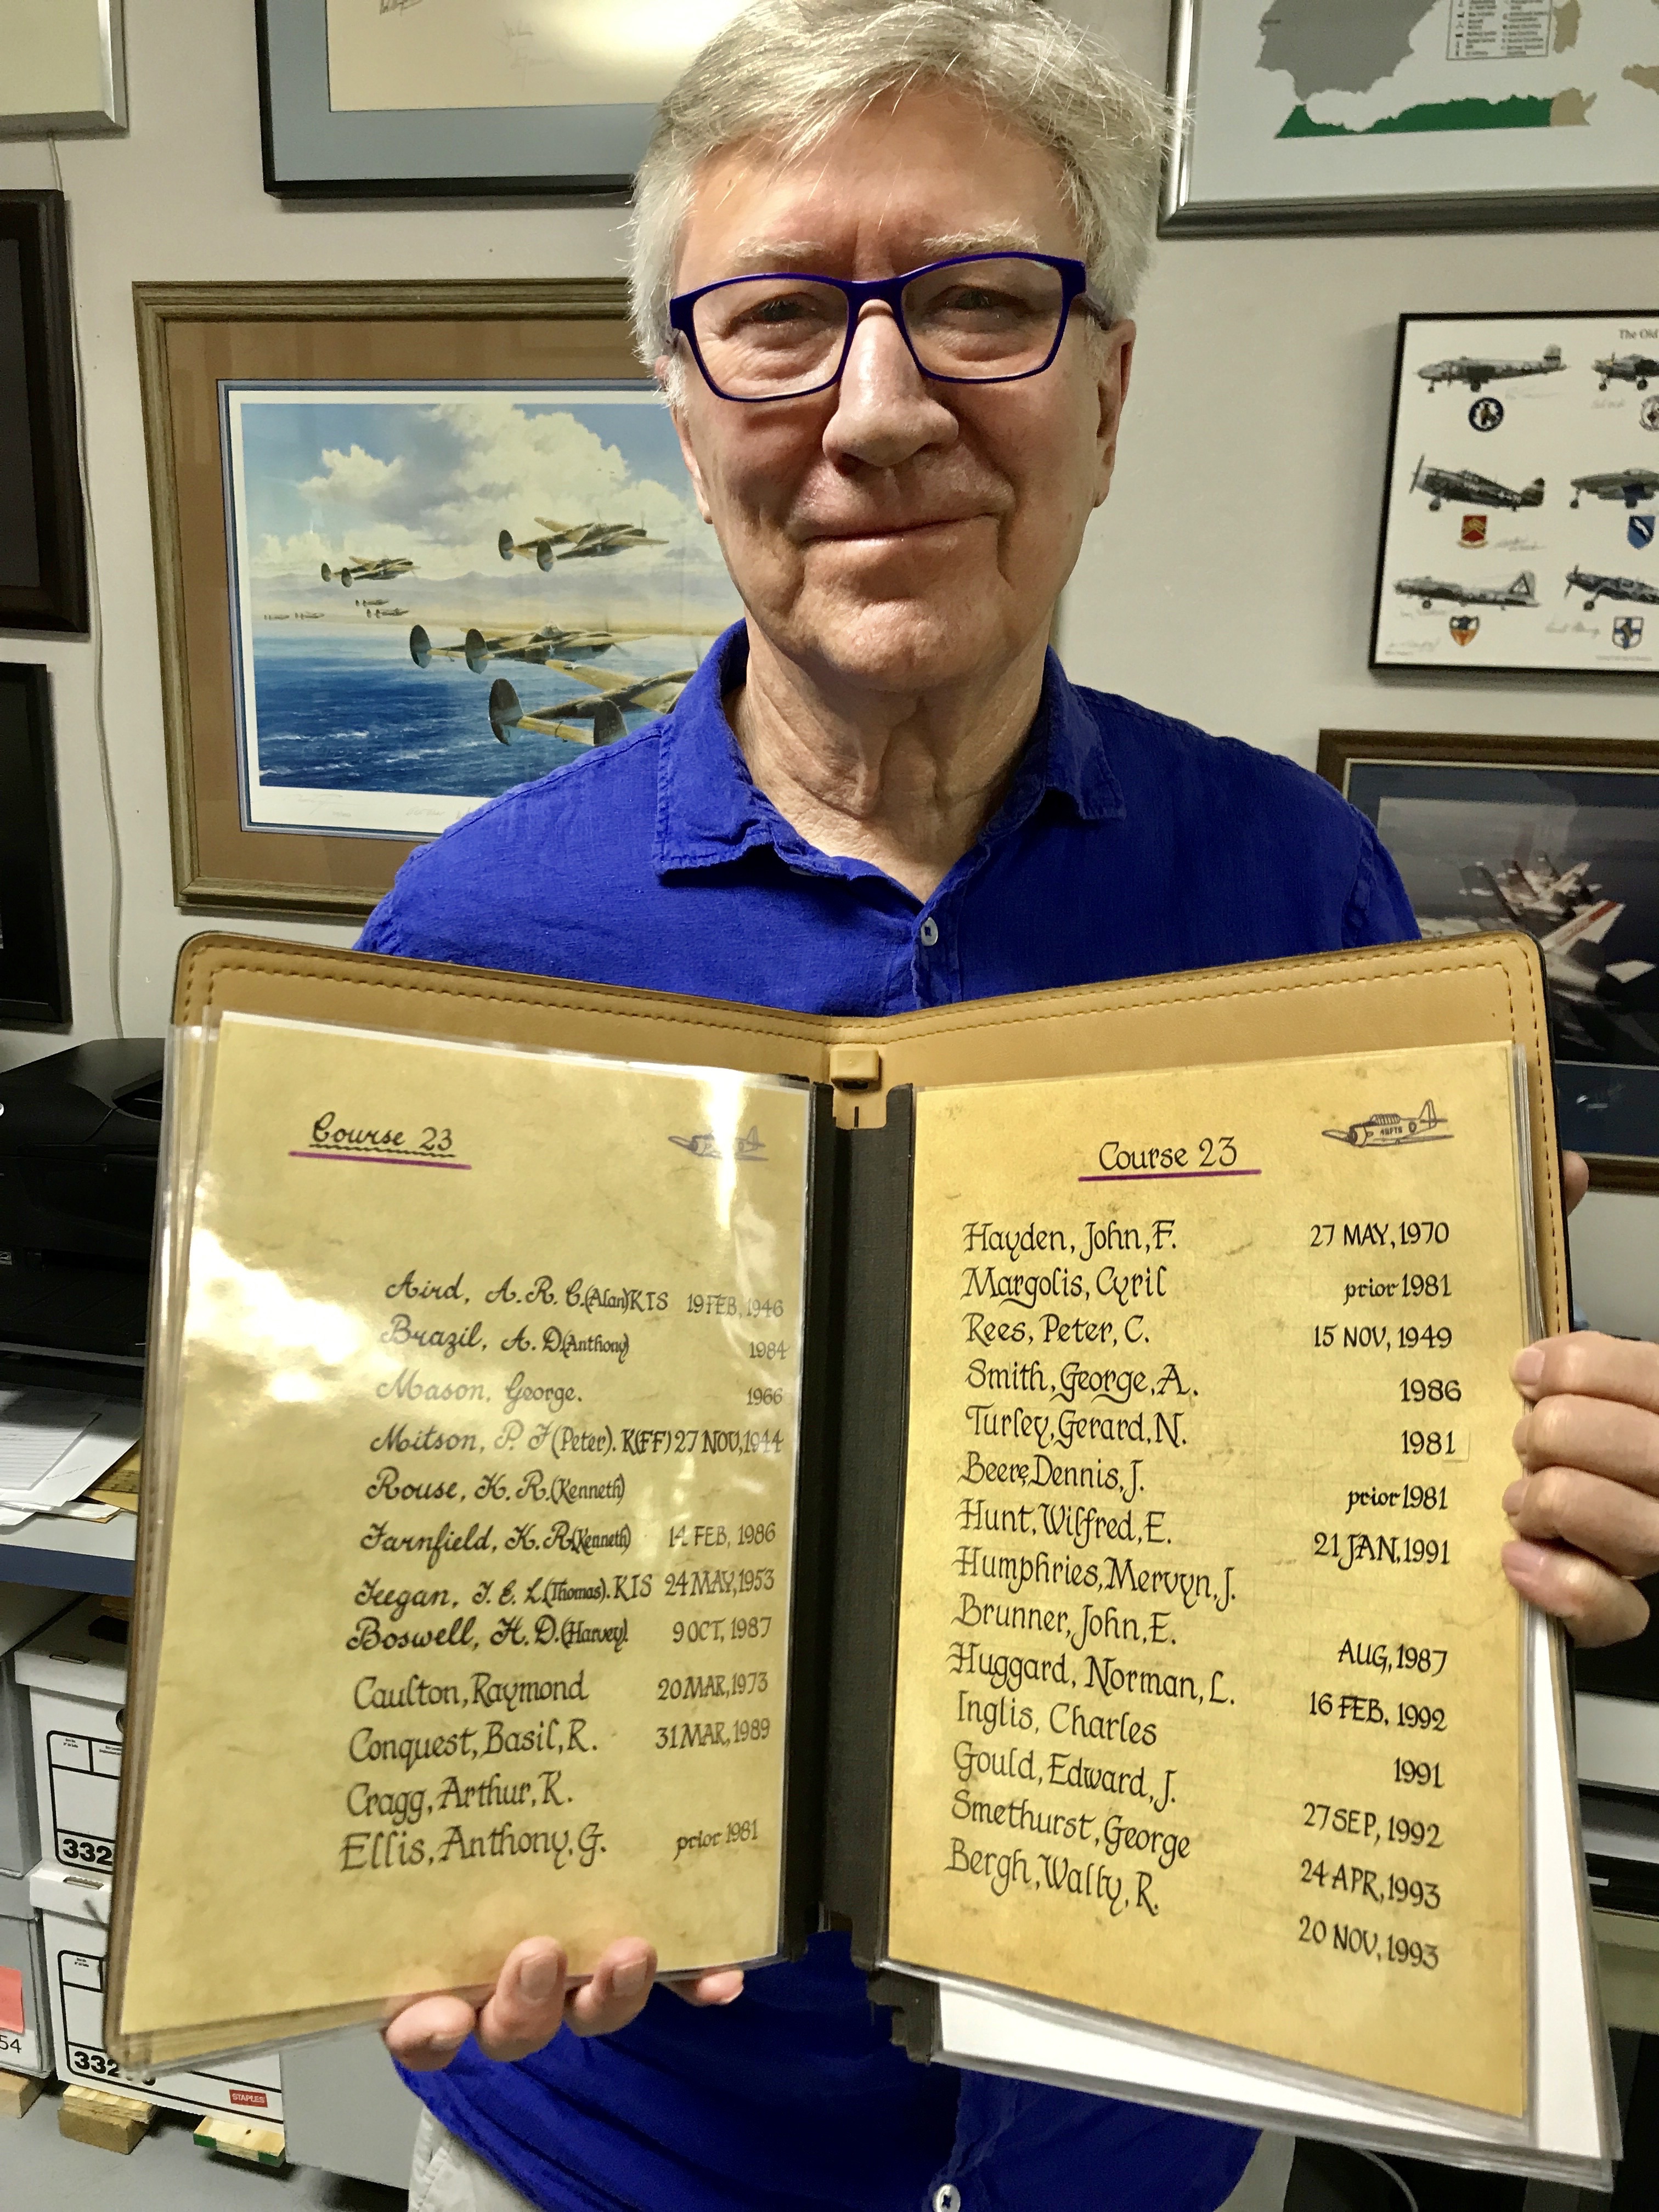 The Old
Course 23
Aird, A. R. C. (Alan) KIS 19 FEB, 1946
Brazil, A. D. (Anthony) 1984
Mason, George. 1966
Mitson, P. J (Peter). K(FF) 27 NOV, 1944
Rouse, K. R. (Kenneth)
Farnfield, K. R. (Kenneth) 14 FEB, 1986
Feegan, T. E. L. (Thomas). KIS 24 MAY, 1953
Boswell, H. D. (Harvey). 9 OCT, 1987
Caulton, Raymond 20 MAR, 1973
Conquest, Basil, R. 31 MAR, 1989
Cragg, Arthur, K.
Ellis, Anthony, G. prior 1981
Course 23
4BFTS
Hayden, John, F. 27 MAY, 1970
Margolis, Cyril prior 1981
Rees, Peter, C. 15 NOV, 1949
Smith, George, A. 1986
Turley, Gerard, N. 1981
Beere, Dennis, J. prior 1981
Hunt, Wilfred, E. 21 JAN, 1991
Humphries, Mervyn, J.
Brunner, John, E. AUG, 1987
Huggard, Norman, L. 16 FEB, 1992
Inglis, Charles 1991
Gould, Edward, J. 27 SEP, 1992
Smethurst, George 24 APR, 1993
Bergh, Wally, R. 20 NOV, 1993
332
332
54
STAPLES